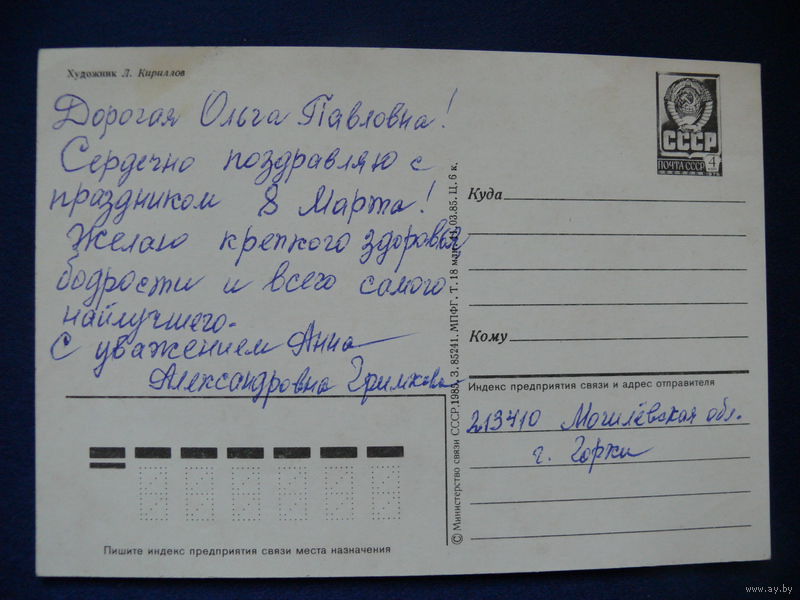 Художник Л. Кириллов
Дорогая Ольга Павловна!
Сердечно поздравляю с
праздником 8 Марта!
Желаю крепкого здоровья
бодрости и всего самого
найлучшего.
С уважением Анна
Александровна
СССР
ПОЧТА СССР 4
Куда
Кому
Индекс предприятия связи и адрес отправителя
213410 Могилёвская обл.
г. Горки
© Министерство связи СССР.1985. З. 85241. МПФГ. Т. 18 03.85. Ц. 6 к.
Пишите индекс предприятия связи места назначения
www.ay.by